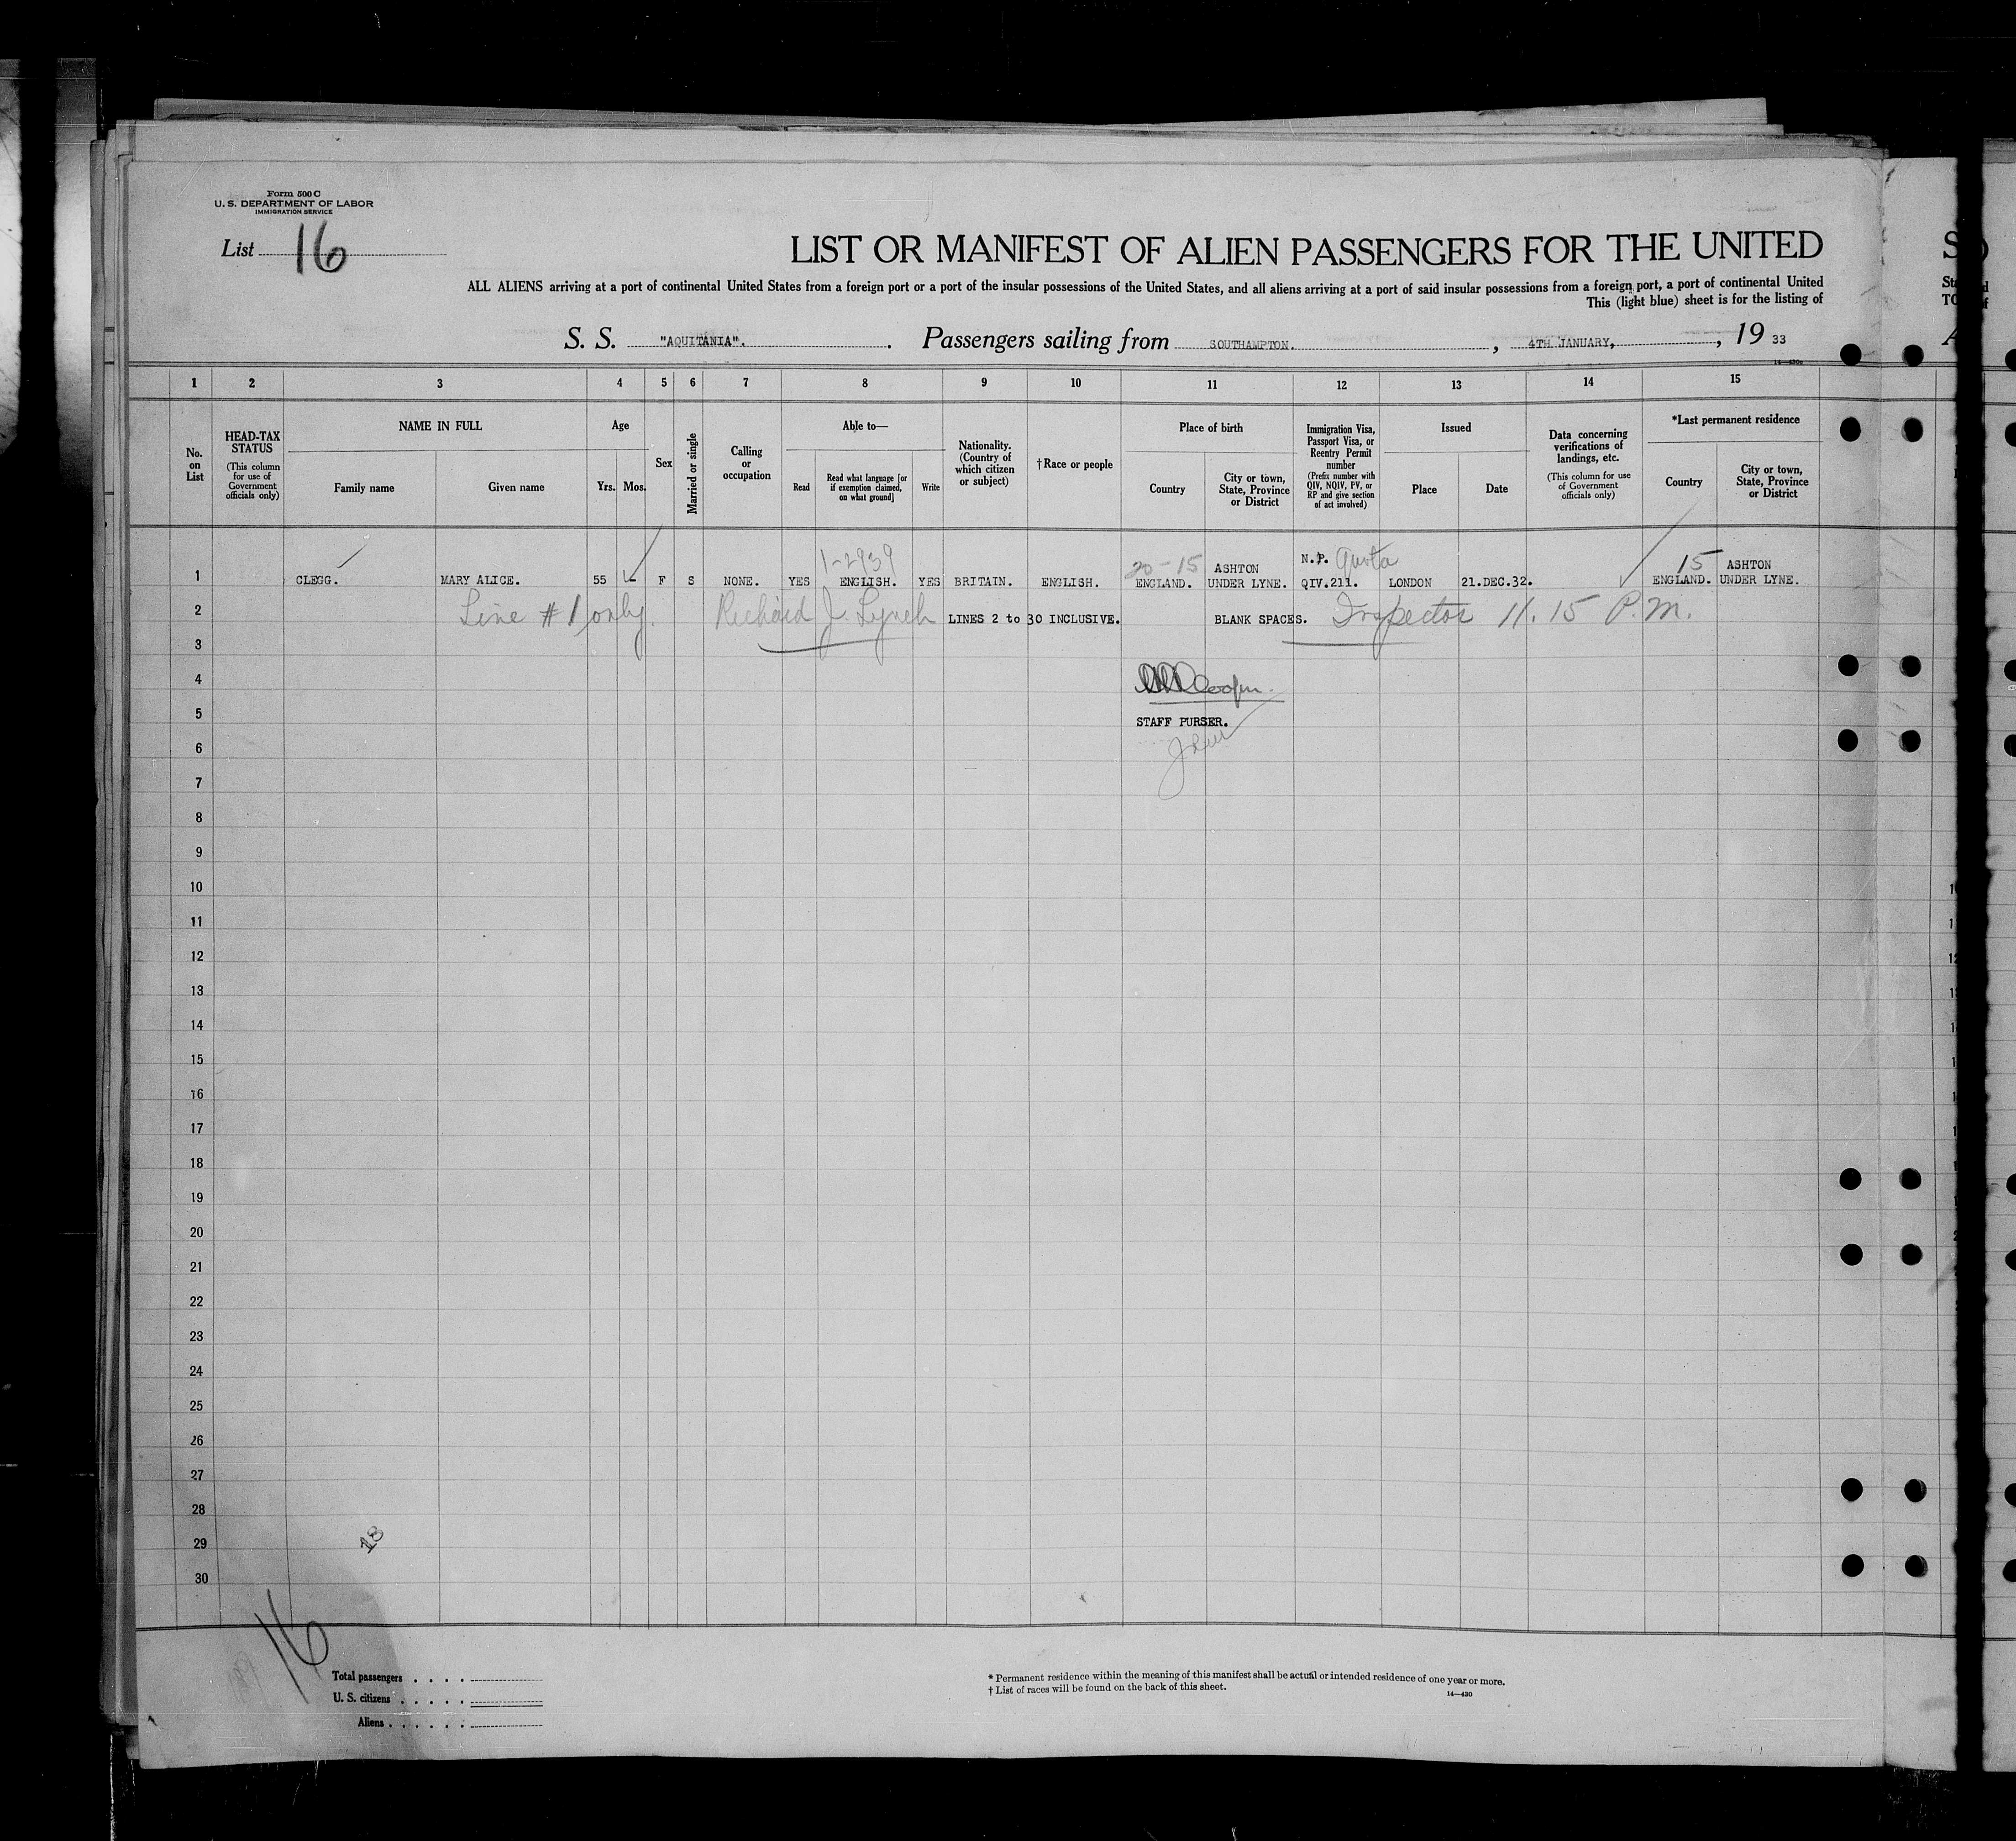 Form 500 C
U. S. DEPARTMENT OF LABOR
IMMIGRATION SERVICE
List 16
LIST OR MANIFEST OF ALIEN PASSENGERS FOR THE UNITED
ALL ALIENS arriving at a port of continental United States from a foreign port or a port of the insular possessions of the United States, and all aliens arriving at a port of said insular possessions from a foreign port, a port of continental United
This (light blue) sheet is for the listing of
S. S. "AQUITANIA". Passengers sailing from SOUTHAMPTON. , 4TH JANUARY, , 19 33
1 2 3 4 5 6 7 8 9 10 11 12 13 14 15
No. on List
HEAD-TAX STATUS
(This column for use of Government officials only)
NAME IN FULL
Family name
Given name
Age
Yrs.
Mos.
Sex
Married or single
Calling or occupation
Able to—
Read
Read what language [or if exemption claimed, on what ground]
Write
Nationality. (Country of which citizen or subject)
†Race or people
Place of birth
Country
City or town, State, Province or District
Immigration Visa, Passport Visa, or Reentry Permit number
(Prefix number with QIV, NQIV, PV, or RP and give section of act involved)
Issued
Place
Date
Data concerning verifications of landings, etc.
(This column for use of Government officials only)
*Last permanent residence
Country
City or town, State, Province or District
1-2939 20-15 ASHTON N.P. Quota 15 ASHTON
1 CLEGG. MARY ALICE. 55 - F S NONE. YES ENGLISH. YES BRITAIN. ENGLISH. ENGLAND. UNDER LYNE. QIV.211. LONDON 21.DEC.32. ENGLAND. UNDER LYNE.
2 Line #1 only. Richard J. Lynch LINES 2 to 30 INCLUSIVE. BLANK SPACES. Inspector 11.15 P.M.
3
4 Cooper.
5 STAFF PURSER.
6
7
8
9
10
11
12
13
14
15
16
17
18
19
20
21
22
23
24
25
26
27
28
29
30
16
Total passengers . . . .
U. S. citizens . . . . .
Aliens . . . . . .
* Permanent residence within the meaning of this manifest shall be actual or intended residence of one year or more.
† List of races will be found on the back of this sheet.
14—430